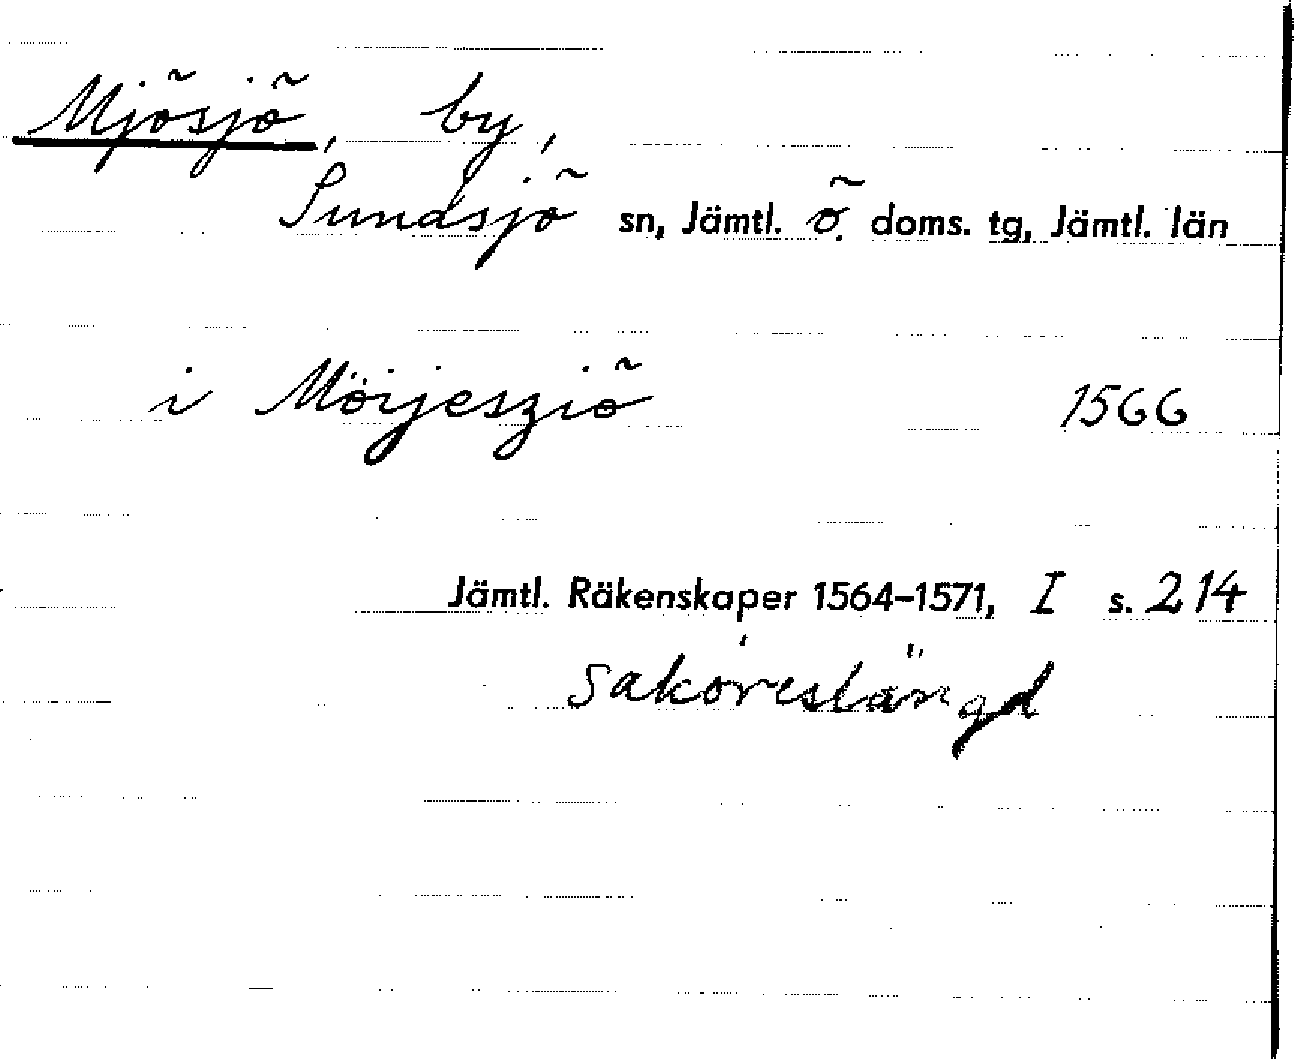 Mjösjö, by,
Sundsjö sn, Jämtl. ö. doms. tg, Jämtl. län
i Möijesziö 1566
Jämtl. Räkenskaper 1564–1571, I s. 214
saköreslängd